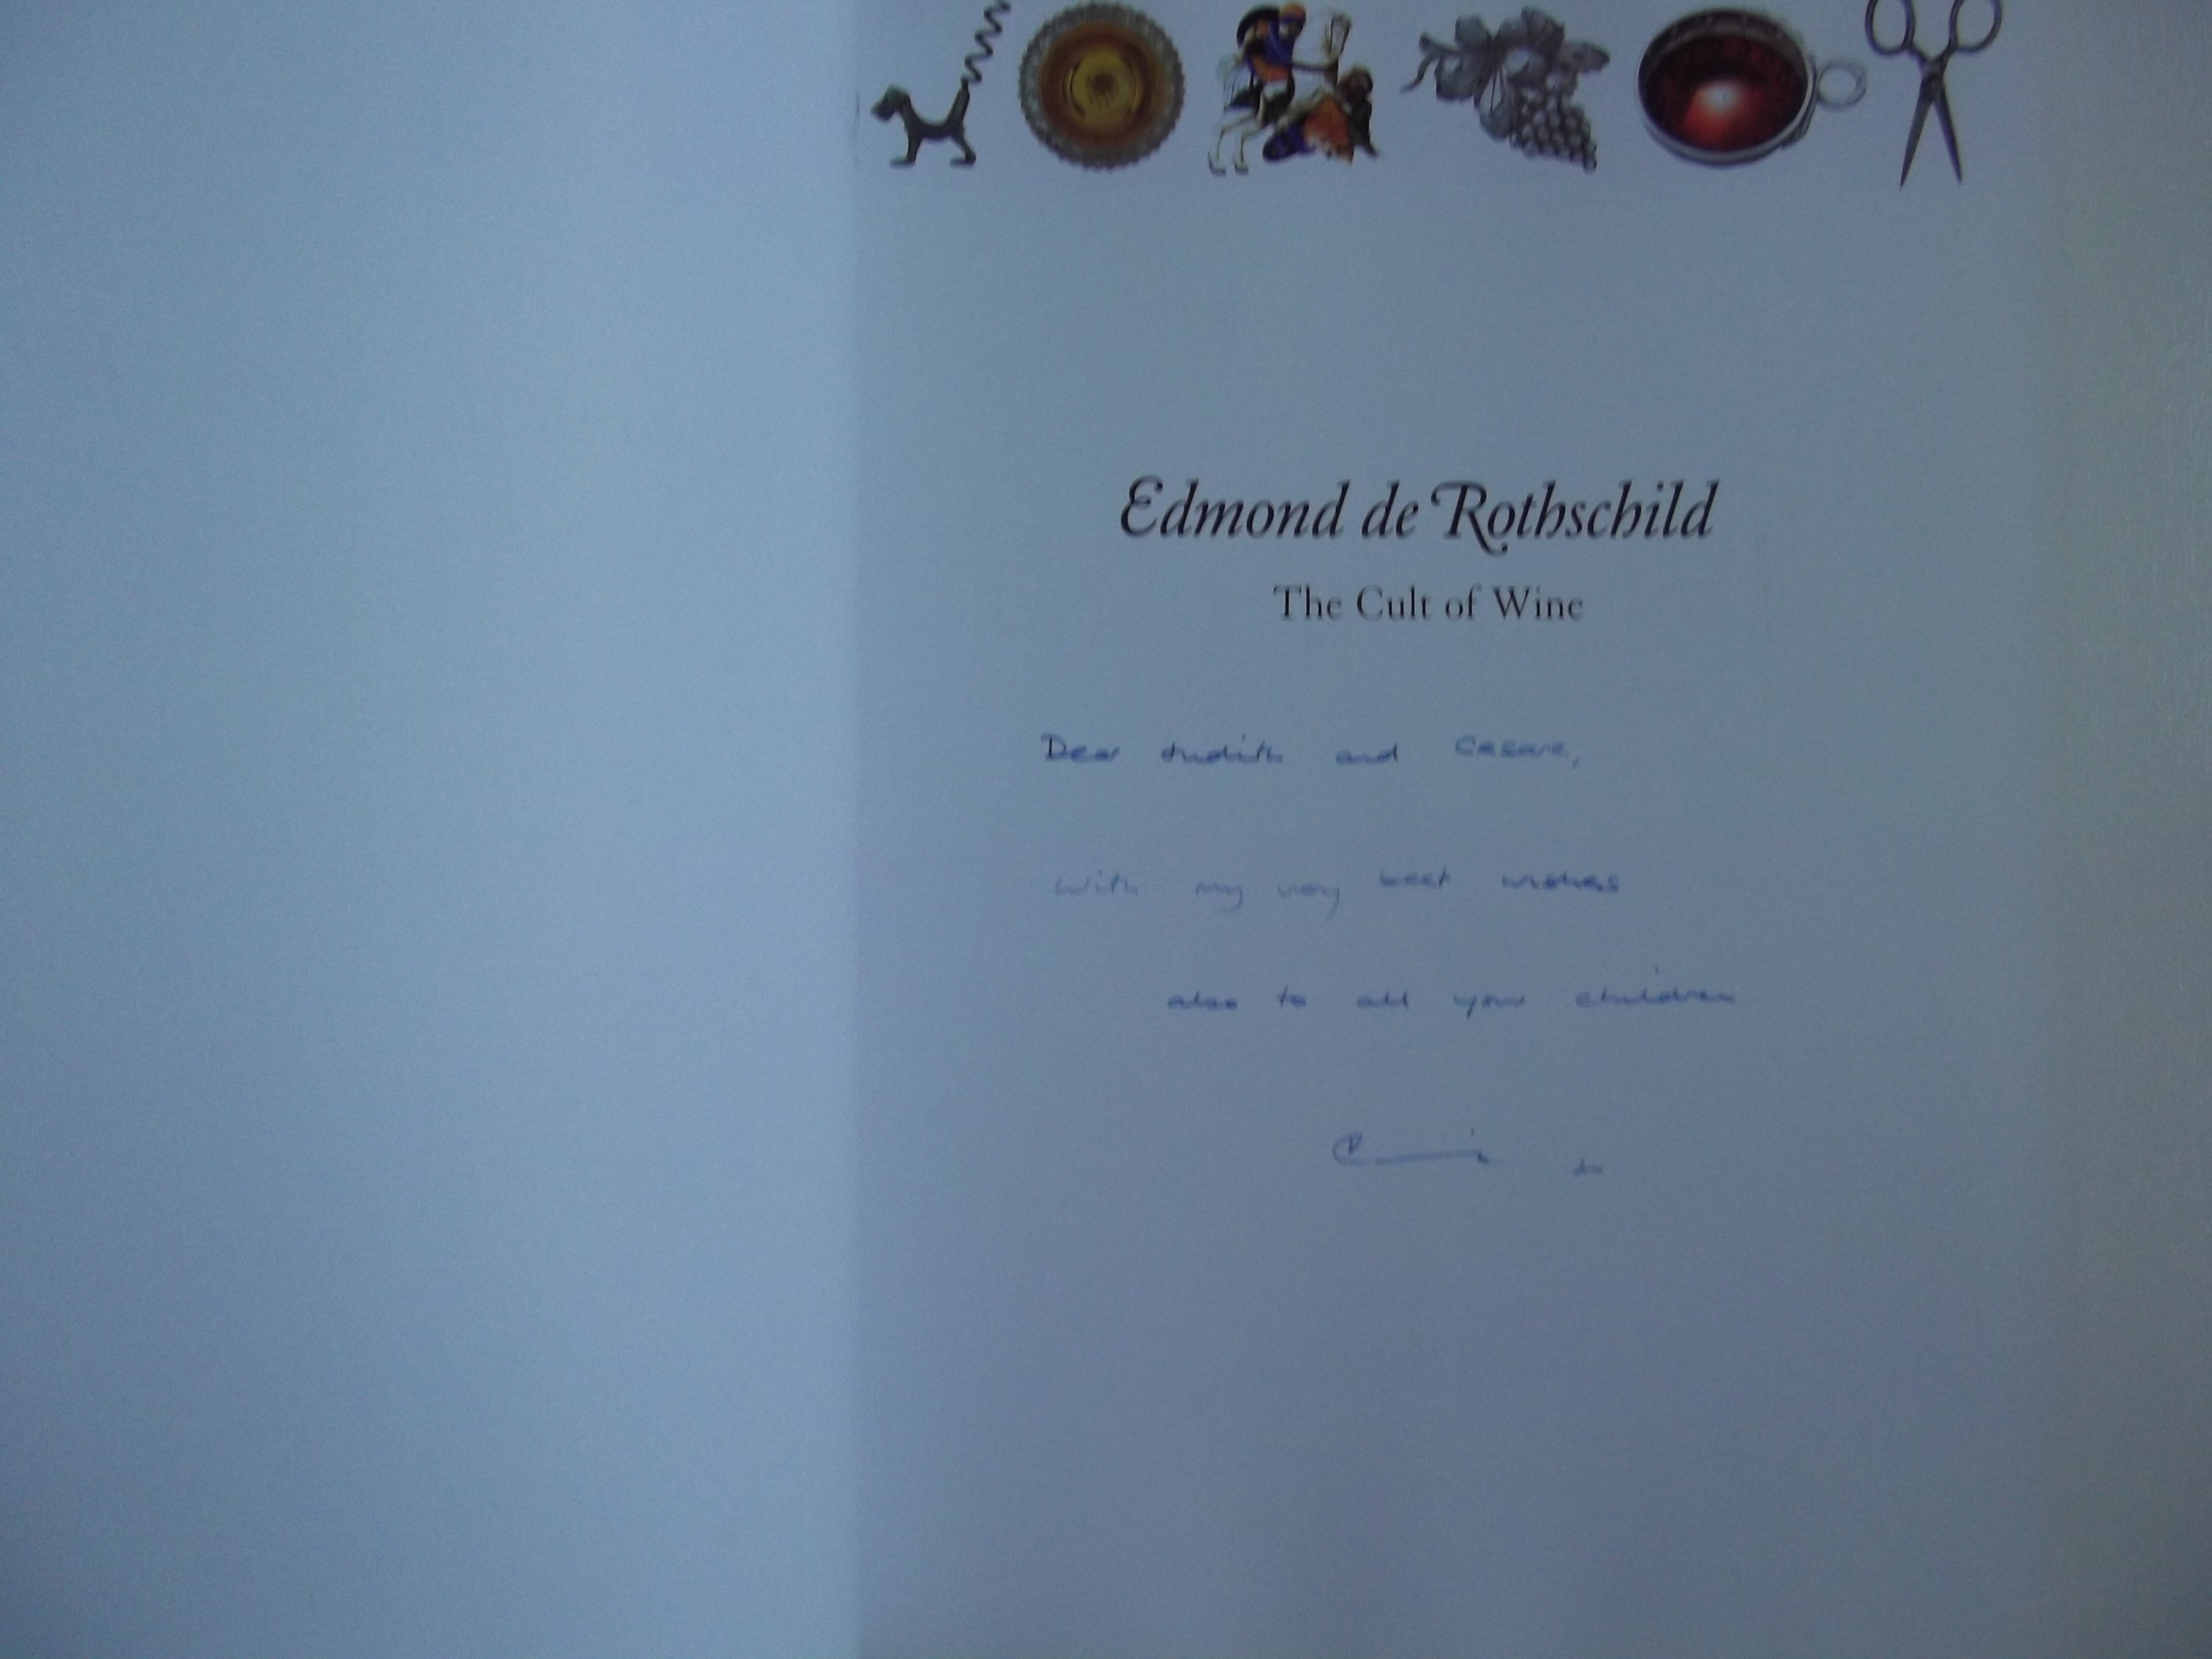 Edmond de Rothschild
The Cult of Wine
Dear Judith and Cesare,
with my very best wishes
also to all your children